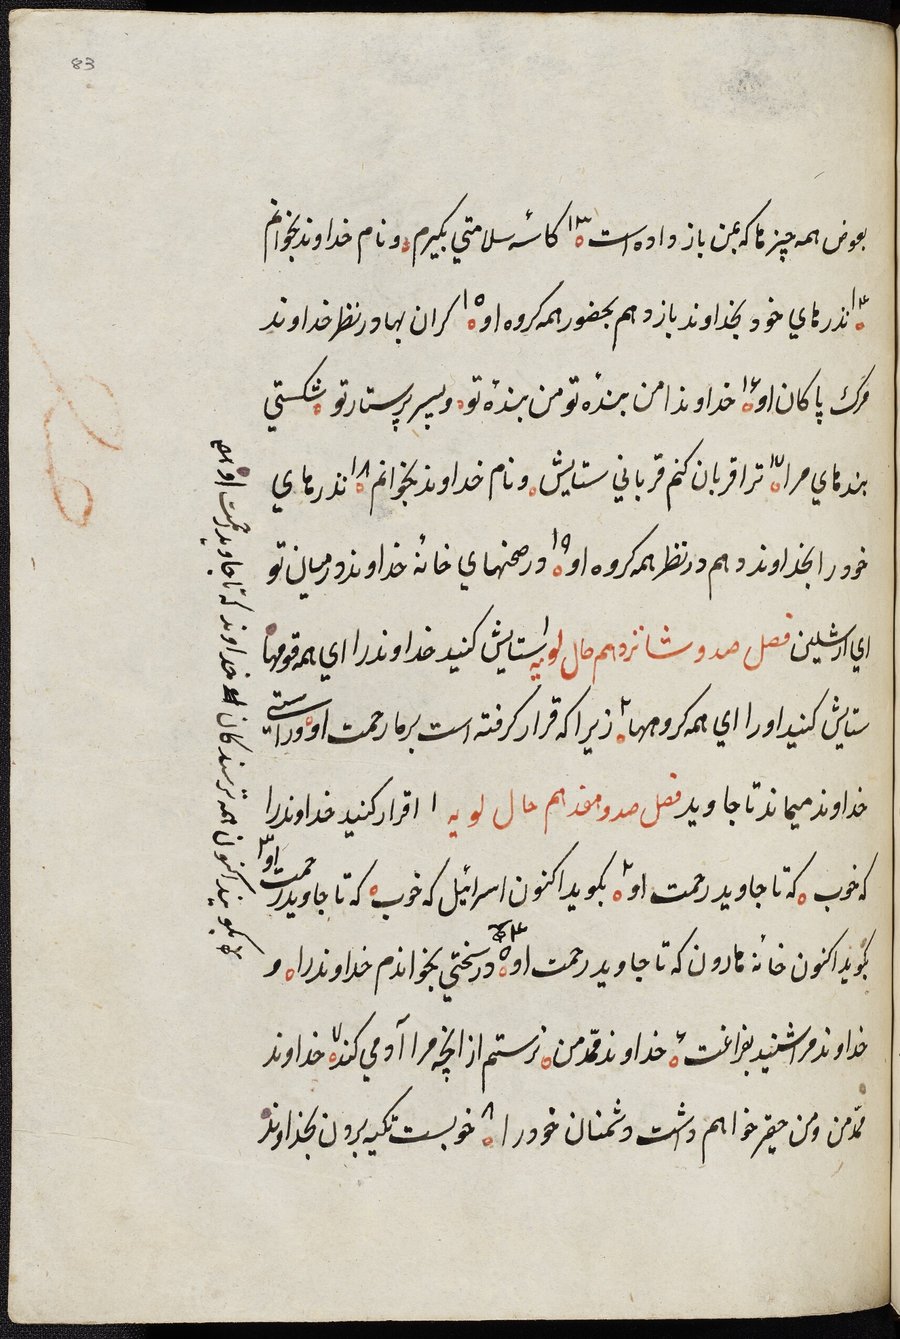 83
بعوض همه چیزهاکه بمن باز داده است ١٣ کاسهٔ سلامتي بکیرم و نام خداوند بخوانم
١٤ نذرهاي خود بخداوند باز دهم بحضور همه کروه او ١٥ کران بها در نظر خداوند
مرک پاکان او ١٦ خداوندا من بندهٔ تو من بندهٔ تو و پسر پرستار تو شکستي
بندهاي مرا ١٧ ترا قربان کنم قرباني ستایش و نام خداوند بخوانم ١٨ نذرهاي
خود را بخداوند دهم در نظر همه کروه او ١٩ در صحنهاي خانهٔ خداوند در میان تو
اي ارشلین فصل صد و شانزدهم حال لویه ١ ستایش کنید خداوند را اي همه قومها
ستایش کنید او را اي همه کروهها ٢ زیرا که قرار کرفته است بر ما رحمت او و راستي
خداوند میماند تا جاوید فصل صد و هفدهم حال لویه ١ اقرار کنید خداوند را
که خوب که تا جاوید رحمت او ٢ بکوید اکنون اسرائیل که خوب که تا جاوید رحمت او ٣
بکوید اکنون خانهٔ هارون که تا جاوید رحمت او ٤ ٥ در سختي بخواندم خداوند را و
خداوند مرا شنید بفراغت ٦ خداوند ممدّ من نرستم از انچه مرا آدمي کند ٧ خداوند
ممدّ من و من حقیر خواهم داشت دشمنان خود را ٨ خوبست تکیه بردن بخداوند
بکویند اکنون همه ترسندکان خداوند که تا جاوید رحمت او